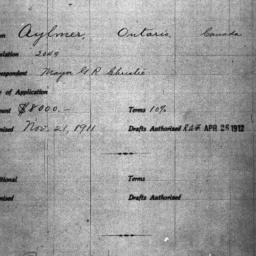 Aylmer, Ontario, Canada
lation 2049
spondent Mayor
e of Application
ount $8000.- Terms 10%
mised Nov. 21, 1911 Drafts Authorized APR 26 1912
itional Terms
mised Drafts Authorized